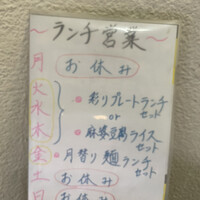 ～ランチ営業～
月 お休み
火
水 ・彩りプレートランチセット
or
木 ・麻婆豆腐ライスセット
金 ・月替り麺ランチセット
土 お休み
日 お休み